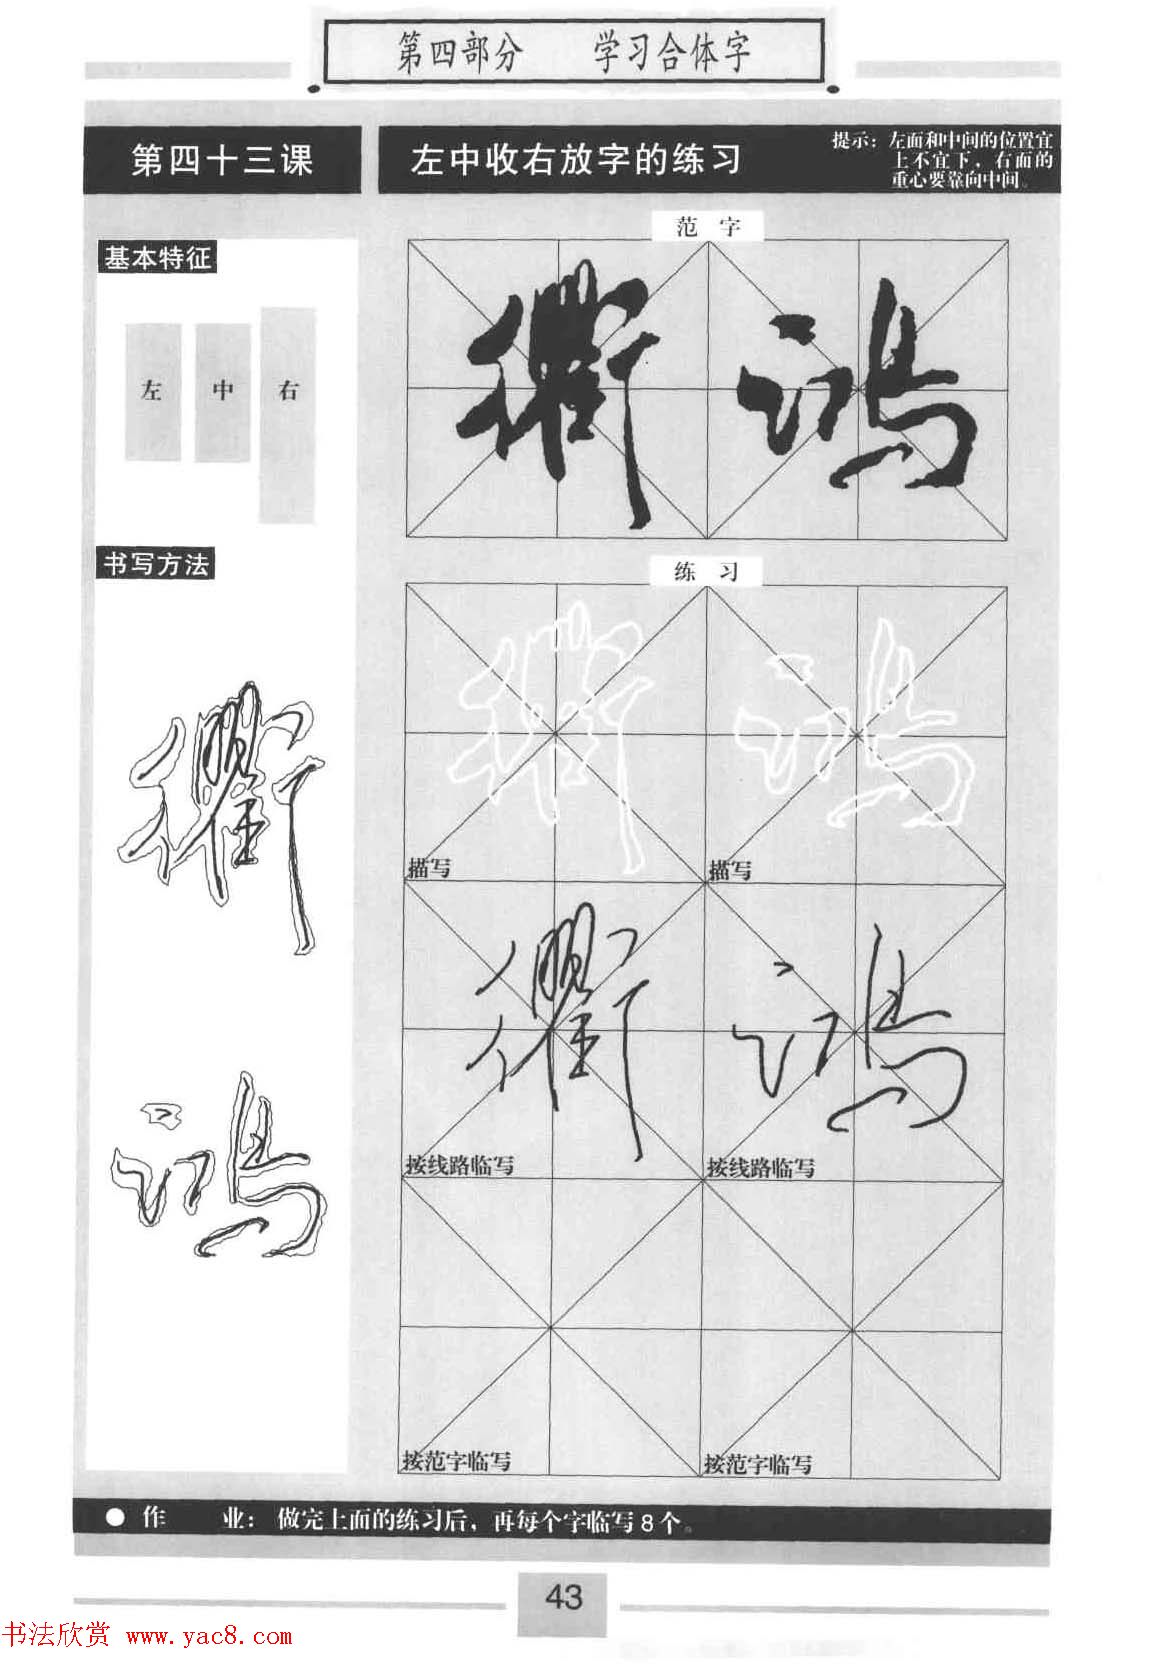 第四部分 学习合体字
第四十三课
左中收右放字的练习
提示：左面和中间的位置宜
上不宜下，右面的
重心要靠向中间。
基本特征
左 中 右
书写方法
范 字
衢 鸿
练 习
描写 描写
按线路临写 按线路临写
按范字临写 按范字临写
● 作 业：做完上面的练习后，再每个字临写8个。
43
书法欣赏 www.yac8.com